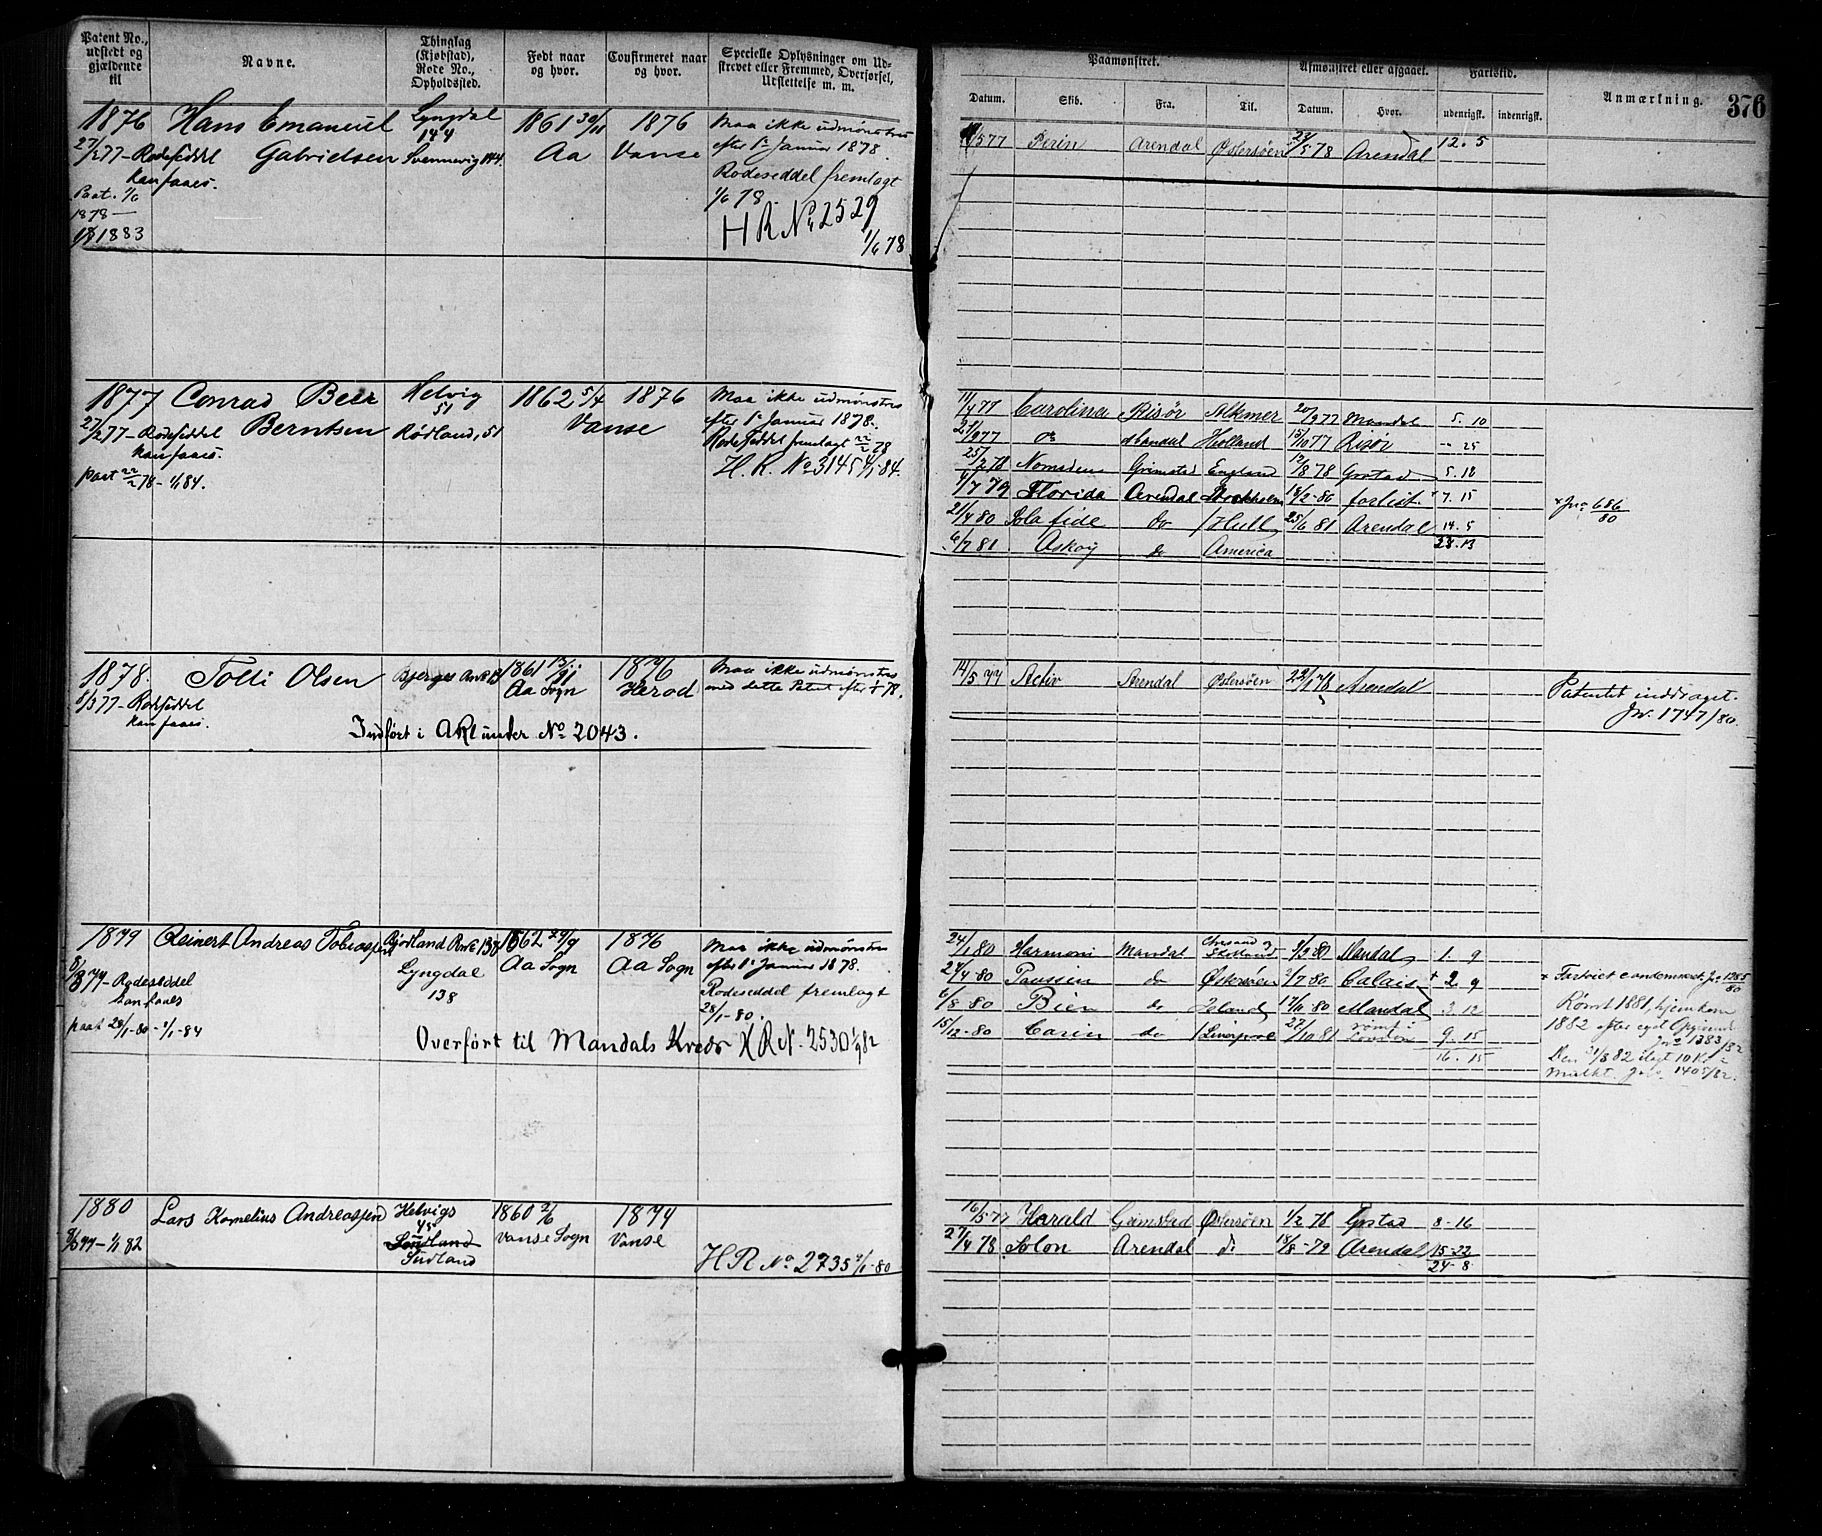 Patent No., udstedt og gjældende til
Navne.
Thinglag (Kjøbstad), Rode No., Opholdssted.
Født naar og hvor.
Confirmeret naar og hvor.
Specielle Oplysninger om Udskrevet eller Fremmed, Overførsel, Udslettelse m. m.
Paamønstret.
Datum.
Skib.
Fra.
Til.
Afmønstret eller afgaaet.
Datum.
Hvor.
Fartstid.
udenrigsk.
indenrigsk.
Anmærkning.
376
1876 Hans Emanuel Lyngdal 1861 30/11 1876 Maa ikke udmønstres
27/2 77 - Rodeseddel Gabrielsen 144 Svennevig 144. Aa Vanse efter 1ste Januar 1878.
kan faaes. Rodeseddel fremlagt
Paat. 1/6 1/6 78.
1878 - HR No 2529
1/1 1883 1/6 78
/5 77 Arendal Østersøen /5 78 Arendal 12. 5
1877 Conrad Beer Helvig 1862 5/4 1876 Maa ikke udmønstres
27/2 77 - Rodeseddel Berntsen 51 Rødland, 51 Vanse efter 1ste Januar 1878.
kan faaes. Rodeseddel fremlagt 22/2 78
paat 22/2 78 - 1/1 84. H. R. No 3145 1/1-84.
11/4 77 Carolina Risør Alkmer /9 77 Mandal 5. 10
21/9 77 do Mandal Holland 15/10 77 Risør " 25
25/2 78 Grimstad England 12/8 78 Grstad 5. 18
/7 79 Florida Arendal Stockholm 14/2-80 forlist + 7. 15
+ Jno 686/80
21/4 80 Sola fide do Hull 25/6 81 Arendal 14. 5
6/7 81 Askoy do America 28. 13
1878. Tolli Olsen Bjerges 1861 1876 Maa ikke udmønstres
/3 77 - Rodeseddel Aa Sogn Herad med dette Patent efter 1/1 78.
kan faaes.
Indført i ARl under No 2043.
14/5 77 Activ Arendal Østersøen Arendal
Patentet inddraget.
Jnr. 1747/80.
1879 Reinert Andreas Tobiassen Rjodland Rode 138 1862 29/9 1876 Maa ikke udmønstres
8/3 77 - Rodeseddel Lyngdal Aa Sogn Aa Sogn efter 1ste Januar 1878.
kan faaes 138 Rodeseddel fremlagt
paat 28/1-80 - 1/1-84 28/1-80.
Overført til Mandals Kreds HR N. 2530 1/9 82
24/1 80 Harmoni Mandal /3 80 Mandal 1. 9
27/4-80 do Østersøen /7-80 Calais + 2 9
6/8-80 Bien do Island 1/-80 Mandal 3 12
15/12-80 Carin do Liverpool 22/10 81 rømt i London 9. 15
16. 15
Rømt 1881, hjemkom
1882 efter eget Opgivende
Jno 1383/82
Den 31/8 82 ilagt 10 Kr
Mulkt. Jno. 1405/82.
1880 Lars Kornelius Andreassen Helvigs 1860 2/6 1874
/3 77 - 1/1 82 45 Vanse Sogn Vanse
Sudland
Sudland
HR No 2735 1/1-80
16/5-77 Harald Grimstad Østersøen 1/2 78 Grstad 8-16
27/4 78 Solon Arendal do 15/8-79 Arendal 15-22
24-8